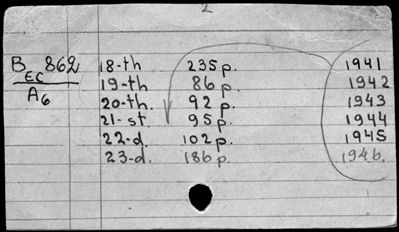 2
B 862 18-th 235 p. 1941
EC 19-th 86 p. 1942
A6 20-th. 92 p. 1943
21-st 95 p. 1944
22-d. 102 p. 1945
23-d. 186 p. 1946.